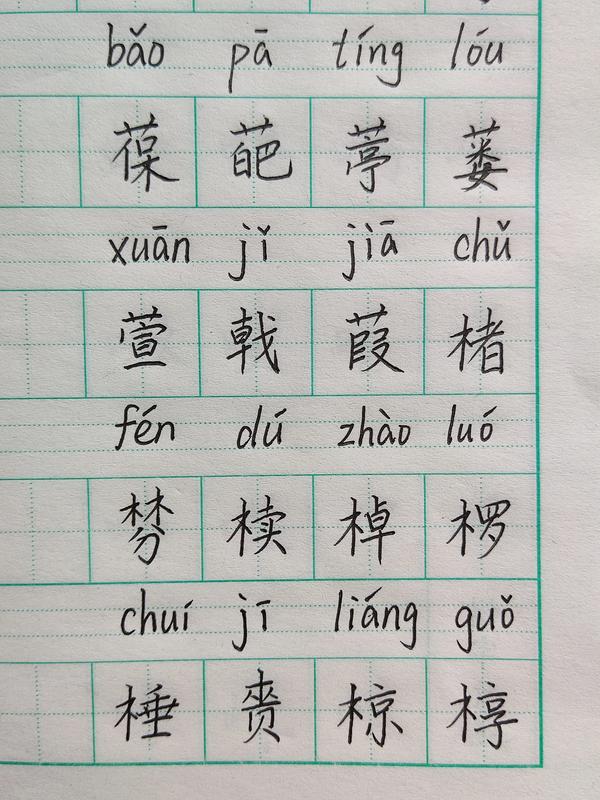 bǎo pā tíng lóu
葆 葩 葶 蒌
xuān jǐ jiā chǔ
萱 戟 葭 楮
fén dú zhào luó
棼 椟 棹 椤
chuí jī liáng guǒ
棰 赍 椋 椁